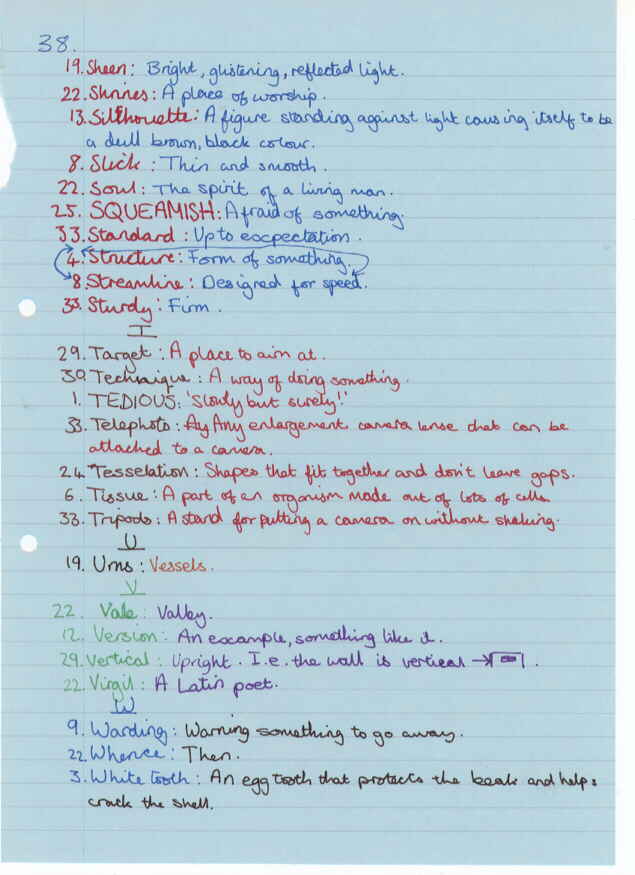 38.
19. Sheen: Bright, glistening, reflected light.
22. Shrines: A place of worship.
13. Silhouette: A figure standing against light causing itself to be
a dull brown, black colour.
8. Slick: Thin and smooth.
22. Soul: The spirit of a living man.
25. SQUEAMISH: Afraid of something.
33. Standard: Up to expectation.
4. Structure: Form of something.
8. Streamline: Designed for speed.
33. Sturdy: Firm.
T
29. Target: A place to aim at.
30. Technique: A way of doing something.
1. TEDIOUS: 'Slowly but surely!'
33. Telephoto: Any enlargement camera lense that can be
attached to a camera.
24. Tesselation: Shapes that fit together and don't leave gaps.
6. Tissue: A part of an organism made out of lots of cells
33. Tripods: A stand for putting a camera on without shaking.
U
19. Urns: Vessels.
V
22. Vale: Valley.
12. Version: An example, something like it.
29. Vertical: Upright. I.e. the wall is vertical
22. Virgil: A Latin poet.
W
9. Warding: Warning something to go away.
22. Whence: Then.
3. White tooth: An egg tooth that protects the beak and helps
crack the shell.